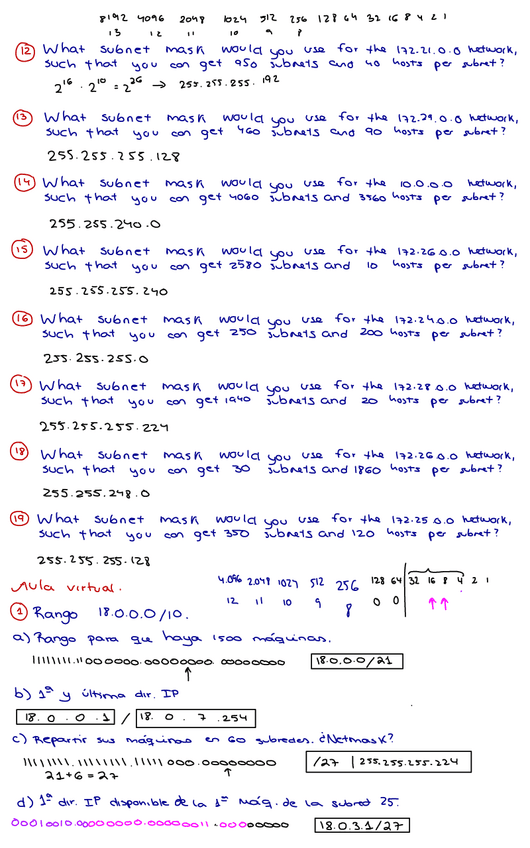 8192 4096 2048 1024 512 256 128 64 32 16 8 4 2 1
13 12 11 10 9 8
12 What subnet mask would you use for the 172.21.0.0 network,
such that you can get 950 subnets and 40 hosts per subnet?
2^16 · 2^10 = 2^26 → 255.255.255.192
13 What subnet mask would you use for the 172.29.0.0 network,
such that you can get 460 subnets and 90 hosts per subnet?
255.255.255.128
14 What subnet mask would you use for the 10.0.0.0 network,
such that you can get 4060 subnets and 3560 hosts per subnet?
255.255.240.0
15 What subnet mask would you use for the 172.26.0.0 network,
such that you can get 2580 subnets and 10 hosts per subnet?
255.255.255.240
16 What subnet mask would you use for the 172.24.0.0 network,
such that you can get 250 subnets and 200 hosts per subnet?
255.255.255.0
17 What subnet mask would you use for the 172.28.0.0 network,
such that you can get 1940 subnets and 20 hosts per subnet?
255.255.255.224
18 What subnet mask would you use for the 172.26.0.0 network,
such that you can get 30 subnets and 1860 hosts per subnet?
255.255.248.0
19 What subnet mask would you use for the 172.25.0.0 network,
such that you can get 350 subnets and 120 hosts per subnet?
255.255.255.128
Aula virtual.
4.096 2.048 1027 512 256 128 64 32 16 8 4 2 1
12 11 10 9 8 0 0 ↑↑
1 Rango 18.0.0.0/10.
a) Rango para que haya 1500 máquinas.
11111111.11000000.00000000.00000000 18.0.0.0/21
↑
b) 1ª y última dir. IP
18. 0 . 0 . 1 / 18. 0 . 7 .254
c) Repartir sus máquinas en 60 subredes. ¿Netmask?
11111111.11111111.11111000.00000000 /27 | 255.255.255.224
21+6=27 ↑
d) 1ª dir. IP disponible de la 1ª máq. de la subred 25.
00010010.00000000.00000011.00000000 18.0.3.1/27